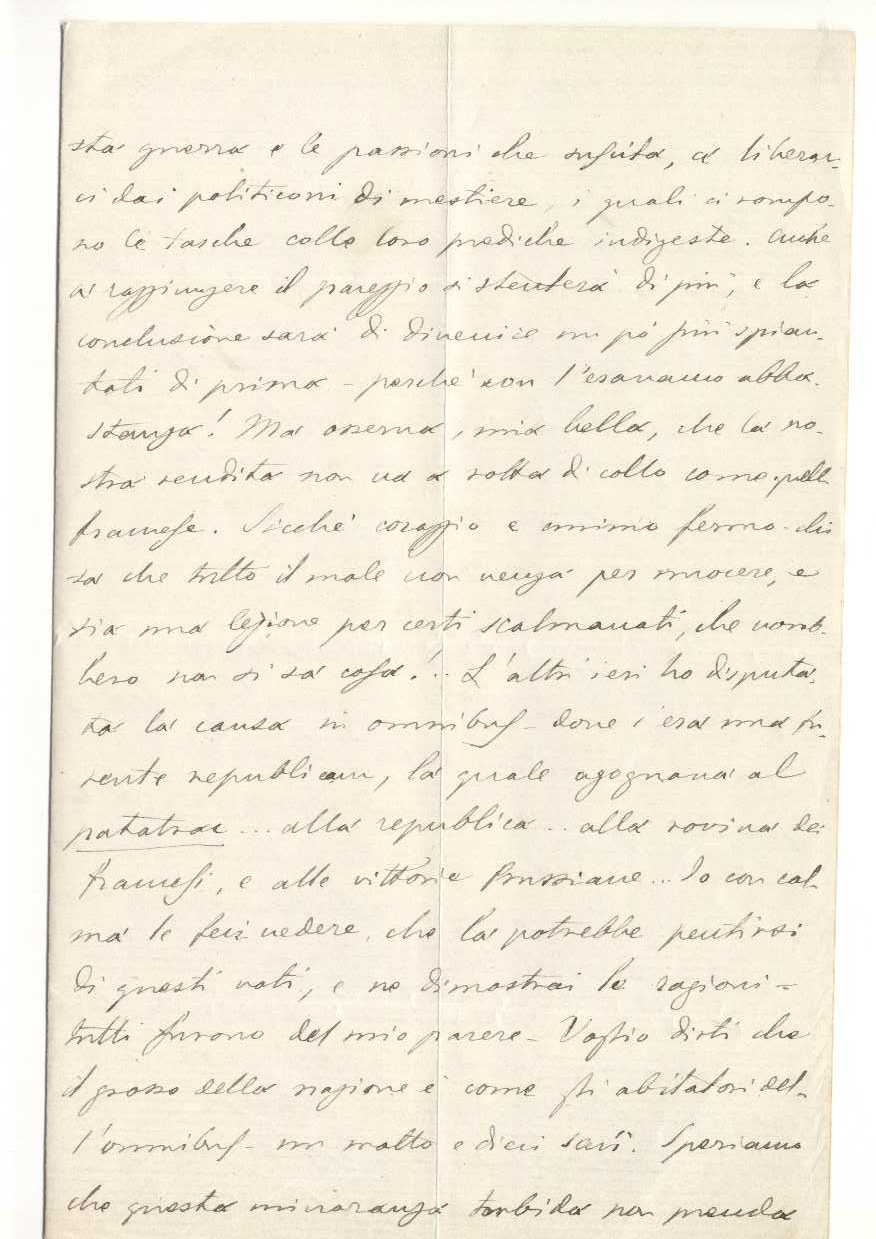 sta guerra e le passioni che suscita, a liberar-
ci dai politiconi di mestiere, i quali ci rompo-
no le tasche colle loro prediche indigeste. Anche
a raggiungere il pareggio si stenterà di più, e la
conclusione sarà di divenire un pò più spian-
tati di prima - perchè non l'eravamo abba-
stanza! Ma osserva, mia bella, che la no-
stra rendita non va a rotta di collo come quella
francese. Sicchè coraggio e animo fermo - chi
sa che tutto il male non venga per nuocere, e
sia una lezione per certi scalmanati, che vorreb-
bero non si sa cosa!.. L'altri ieri ho disputa-
ta la causa in omnibus - dove v'era una fu-
rente republicana, la quale agognava al
patatrac ... alla republica .. alla rovina dei
francesi, e alle vittorie Prussiane ... Io con cal-
ma le feci vedere, che la potrebbe pentirsi
di questi voti, e ne dimostrai le ragioni -
tutti furono del mio parere - Voglio dirti che
il grosso della nazione è come gli abitatori del-
l'omnibus - un matto e dieci savî. Speriamo
che questa minoranza torbida non prenda